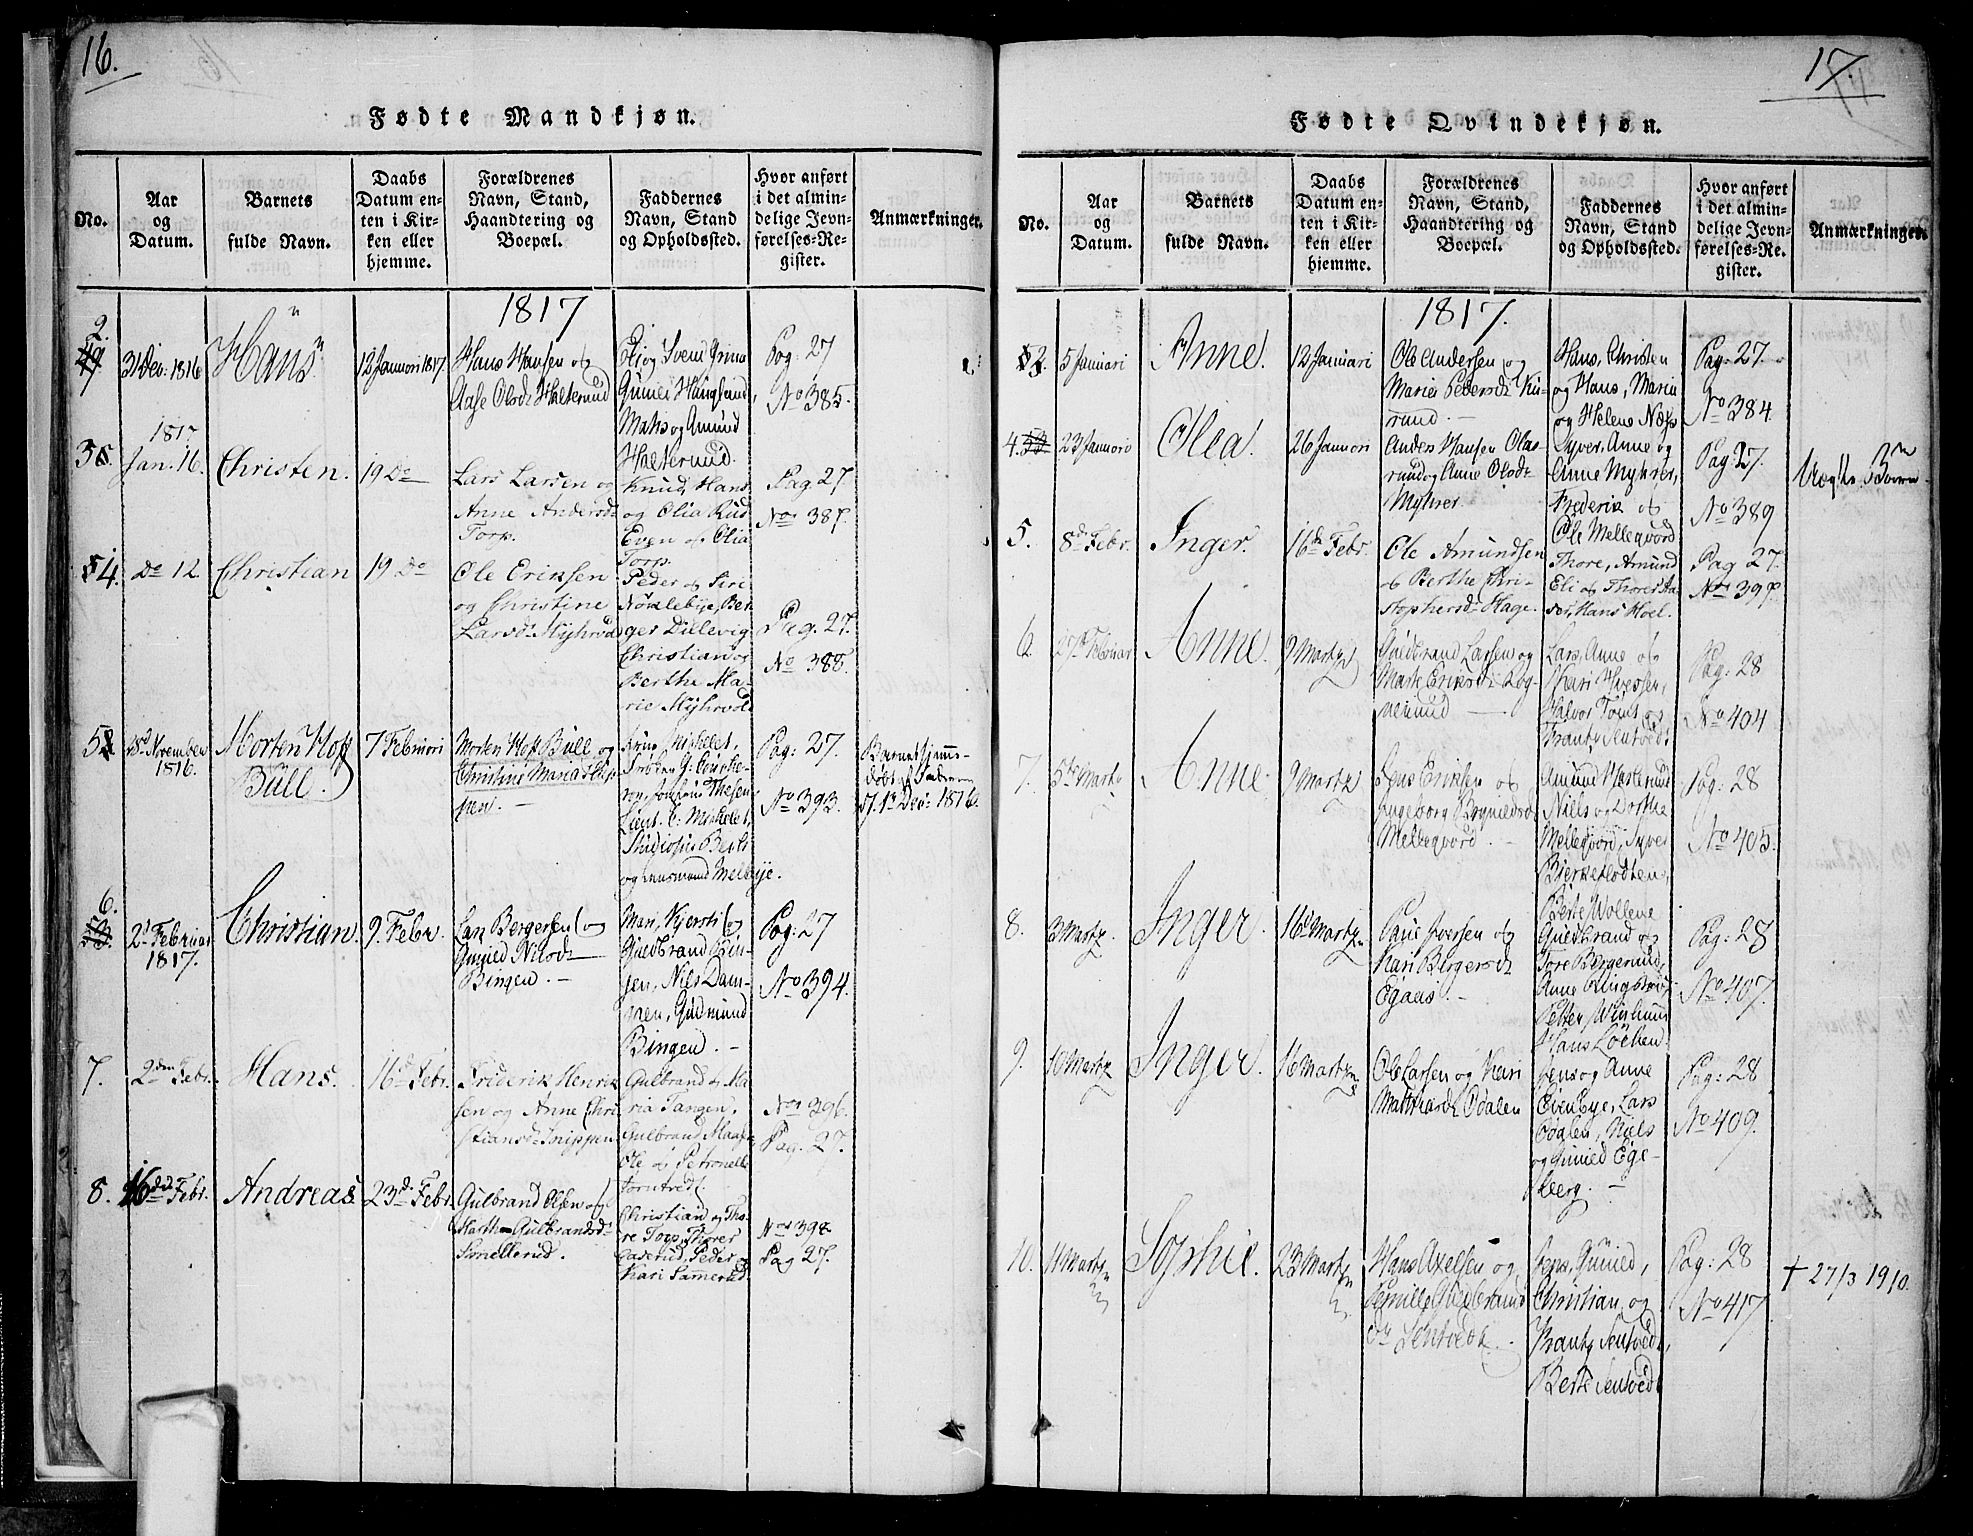 16.
Fødte Mandkjøn.
No.
Aar
og
Datum.
Barnets
fulde Navn.
Daabs
Datum en-
ten i Kir-
ken eller
hjemme.
Forældrenes
Navn, Stand,
Haandtering og
Boepæl.
Faddernes
Navn, Stand
og Opholdssted.
Hvor anført
i det almin-
delige Jevn-
førelses-Re-
gister.
Anmærkninger.
1817
2.
31 Dec: 1816
Hans
12 Januari 1817.
Hans Hansen og
Aase Olsdr Halterud
Eli og Svend Grimo
Gunild Haugland,
Mats og Amund
Halterud.
Pag: 27
No 385.
3
1817
Jan. 16.
Christen.
19 Do
Lars Larsen og
Anne Andersdr
Torp.
Knud, Hans
og Olia Rud
Even og Olia
Torp.
Pag. 27.
No 387.
4.
Do 12
Christian
19 Do
Ole Eriksen
og Christine
Larsdr Myhrvd
Peder og Siri
Nöklebye, Ber-
ger Dillevig
Christian og
Berthe Ma-
rie Myhrvd
Pag. 27.
No 388.
5
18d November
1816.
Morten Hoff
Bull.
7 Februari
Morten Hoff Bull og
Christine Maria
Pag: 27.
No 393.
Barnet hjemme-
døbt af Faderen
1r Dec: 1816.
6.
2d Februar
1817.
Christian.
9. Febr.
Lars Bergersen og
Gunild Nilsdr
Bingen. –
Mari, Kjersti og
Guldbrand Bin-
gen, Niels Dam-
men, Gudmund
Bingen. –
Pag: 27
No 394.
7.
2den Febr.
Hans.
16d Febr.
Friderik Henrik
sen og Anne Chri
stiansdr Snippen
Gulbrand og Ma-
ria Tangen.
Gulbrand
Ole og Petronelle
No 396.
Pag. 27.
8.
16d Febr.
Andreas
23d Febr
Gulbrand Olsen og
Marthe Gulbrandsdr
Smellerud.
Christian og Tho-
re Torp, Thorer
Caserud, Peder og
Kari Sammerud.
No 398
Pag 27.
17.
Fødte Qvindekjøn.
No.
Aar
og
Datum.
Barnets
fulde Navn.
Daabs
Datum en-
ten i Kir-
ken eller
hjemme.
Forældrenes
Navn, Stand,
Haandtering og
Boepæl.
Faddernes
Navn, Stand
og Opholdssted.
Hvor anført
i det almin-
delige Jevn-
førelses-Re-
gister.
Anmærkninger.
1817.
3.
5 Januari
Anne.
12 Januari
Ole Andersen og
Marie Pedersdr Ku-
rud. –
Hans, Christen
og Hans, Maria
og Helene Næss
Pag: 27.
No 384
4.
23 Januari
Olea
26 Januari
Anders Hansen Olas-
rud og Anne Olsdr
Myhrer.
Syver, Anne og
Anne Myhrer,
Frederik og
Ole Melleqvord
Pag: 27.
No 389
Uægte Barn
5.
8d Febr.
Inger.
16de Febr.
Ole Amundsen
og Berthe Chri-
stophersdr Hage.
Thore, Amund
Eli og Thorer Aa-
ser, Hans Hoel.
Pag 27.
No 397.
6.
27de Februar
Anne.
9 Martz
Guldbrand Larsen og
Marte Eriksdr Rog-
neiund –
Lars, Anne og
Kari Hvessen,
Halvor Tomt og
Frantz Sentvedt
Pag: 28
No 404
7.
5te Martz
Anne
9 Martz
Jens Eriksen og
Ingeborg Brynildsdr
Melleqvord. –
Amund Hasterud
Niels og Dorthe
Melleqvord, Syver
Bierkeslodten,
Pag: 28
No 405.
8.
3 Martz.
Inger.
16d Martz
Paul Iversen og
Kari Bergersdr
Egaas. –
Berte Wollene
Guldbrand og
Tore Bergerud,
Anne Ringstou
Petter
Pag: 28
No 407.
9.
10 Martz
Inger
16 Martz
Ole Larsen og Kari
Matthiasdr Odalen
Hans Löchen
Jens og Anne
Evenbye, Lars
Oeglen, Niels
og Gunild Ege-
berg. –
Pag: 28
No 409.
10.
11 Martz
Sophie.
23 Martz
Hans Axelsen og
Pernille Guldbrand
dr Sentvedt.
Jens, Gunild,
Christian og
Frantz Sentvedt,
Berte Sentvedt
Pag: 28
No 417.
† 27/3 1910.